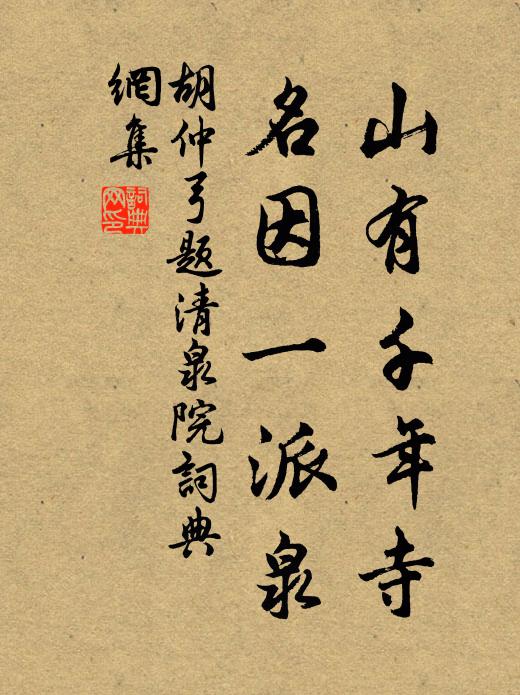 山有千年寺
名因一派泉
胡仲弓题清泉院詞典
網集
詞典网印